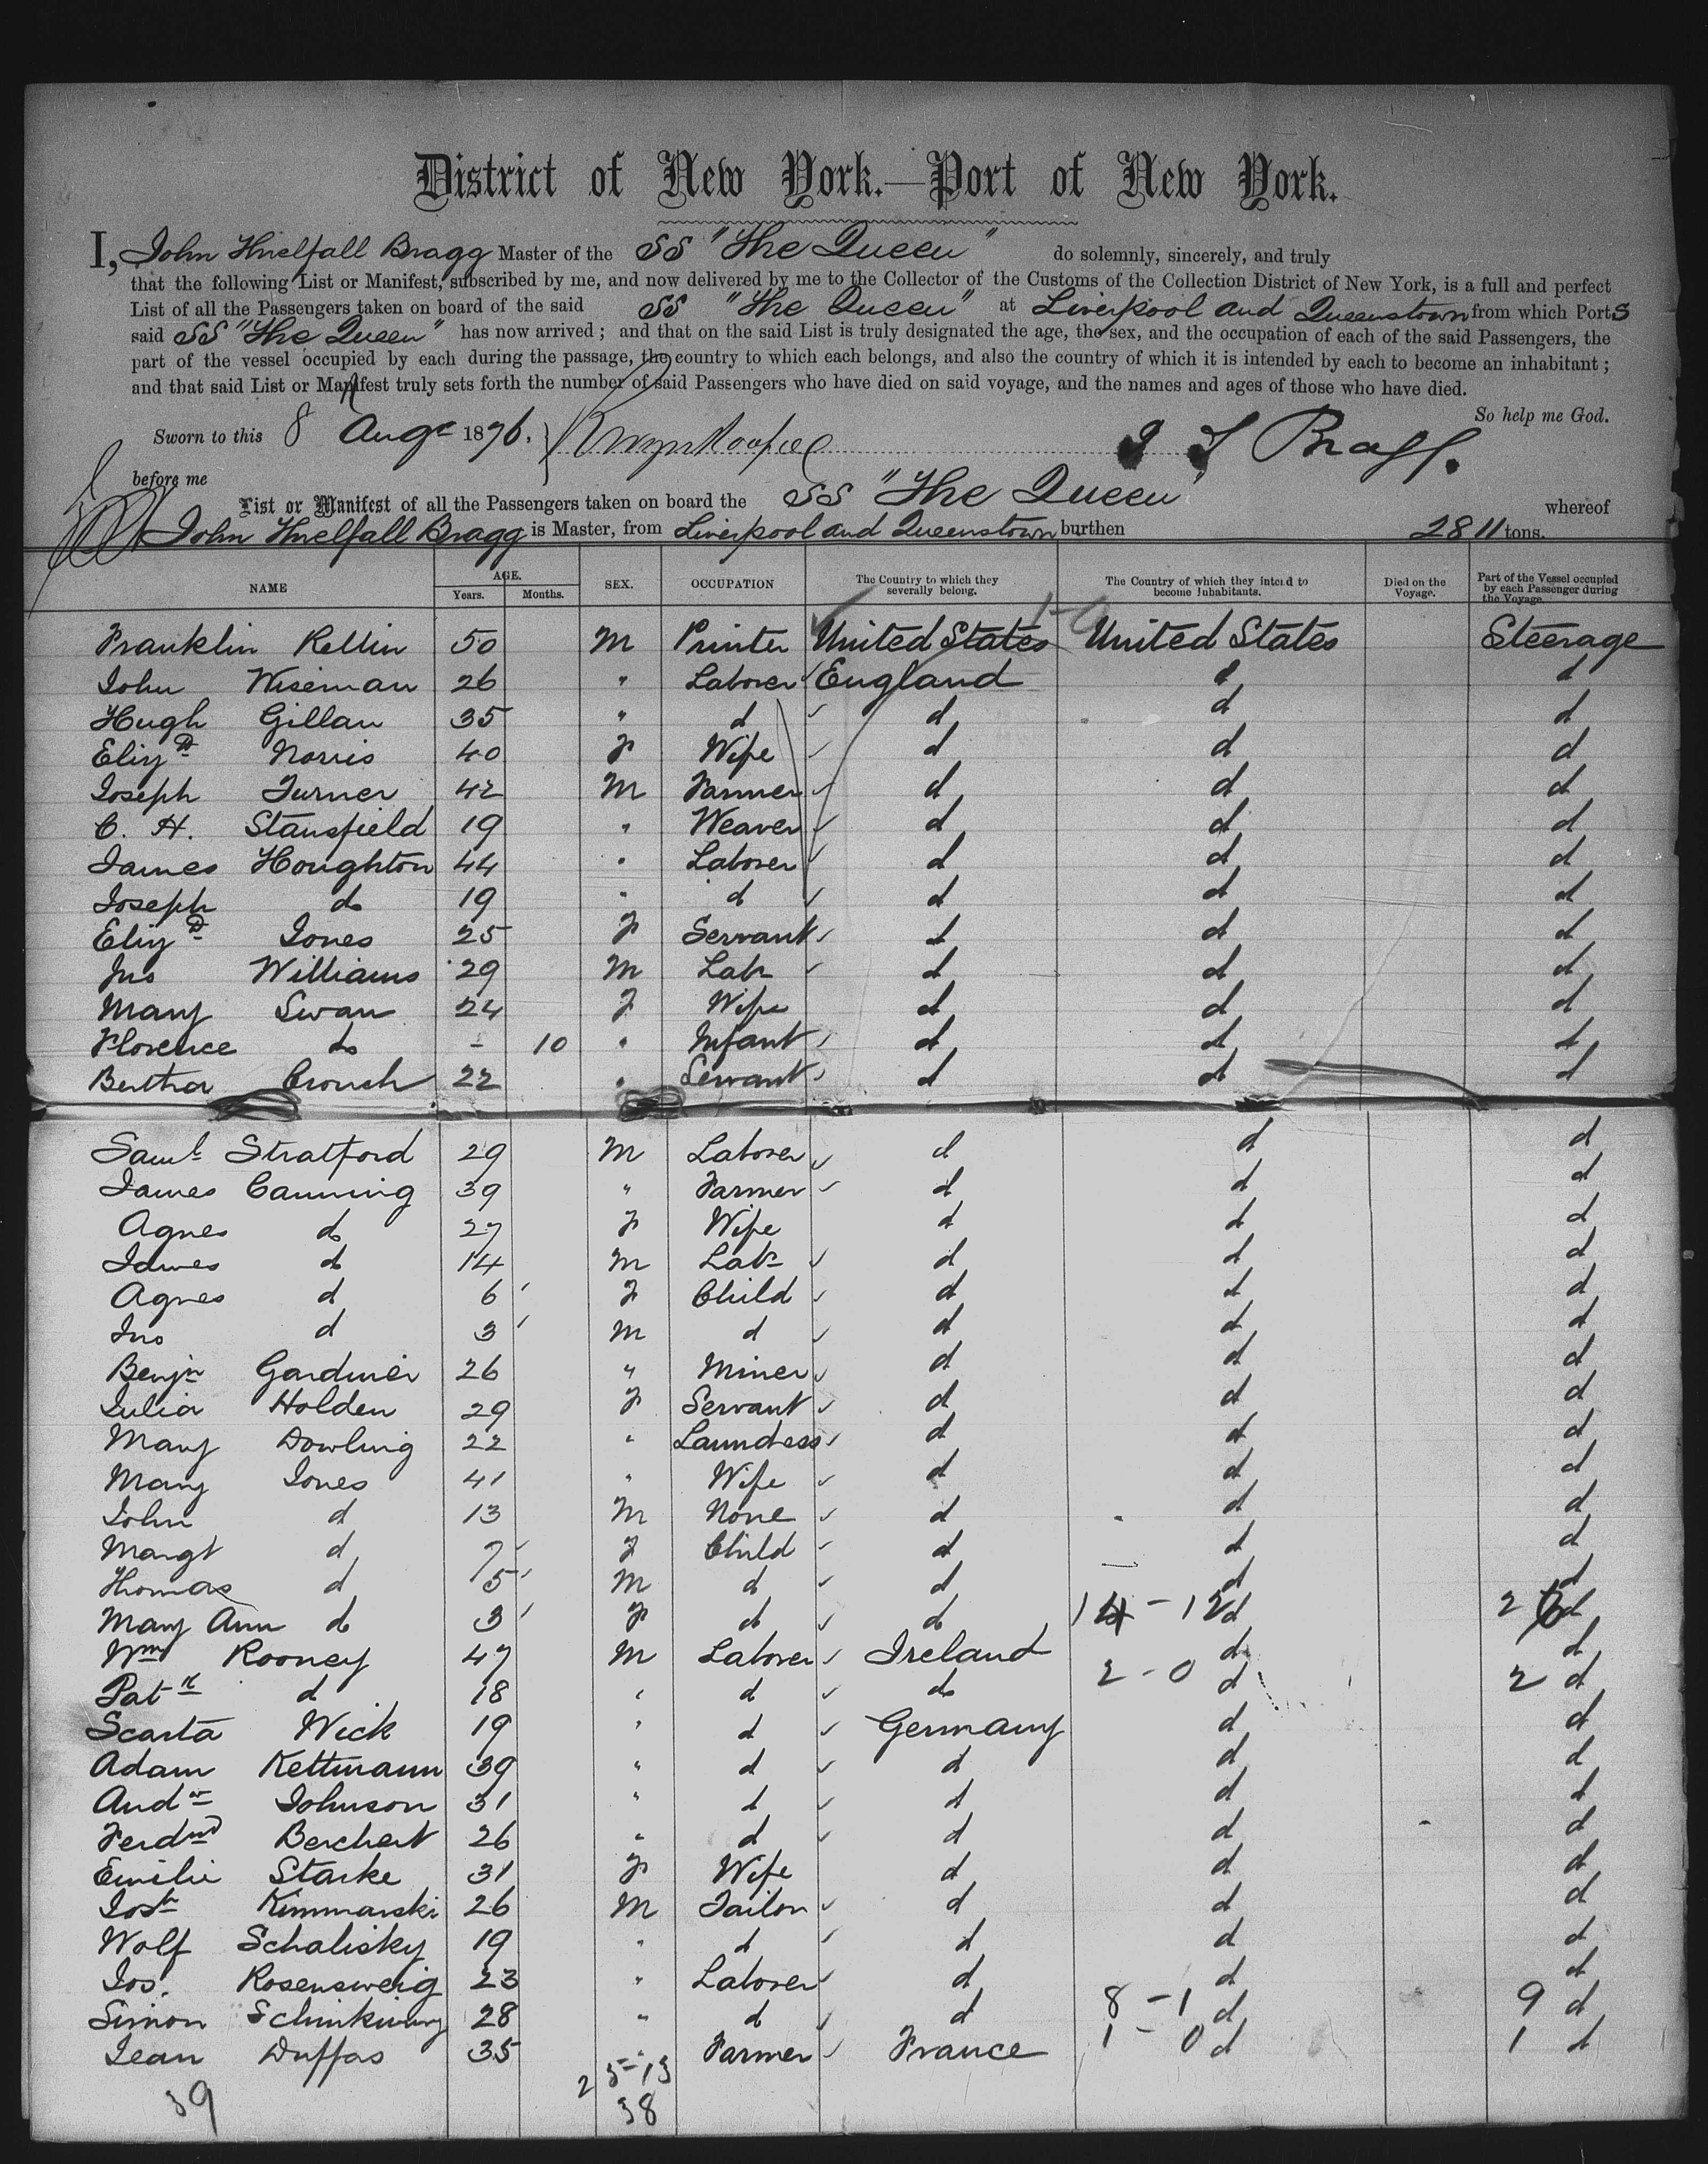 District of New York.—Port of New York.
I, John Thielfall Bragg Master of the SS "The Queen" do solemnly, sincerely, and truly
that the following List or Manifest, subscribed by me, and now delivered by me to the Collector of the Customs of the Collection District of New York, is a full and perfect
List of all the Passengers taken on board of the said SS "The Queen" at Liverpool and Queenstown from which Ports
said SS "The Queen" has now arrived; and that on the said List is truly designated the age, the sex, and the occupation of each of the said Passengers, the
part of the vessel occupied by each during the passage, the country to which each belongs, and also the country of which it is intended by each to become an inhabitant;
and that said List or Manifest truly sets forth the number of said Passengers who have died on said voyage, and the names and ages of those who have died.
So help me God.
Sworn to this 8 Augt 1876. J T Bragg.
before me
List or Manifest of all the Passengers taken on board the SS "The Queen" whereof
John Thielfall Bragg is Master, from Liverpool and Queenstown burthen 2811 tons.
NAME AGE. Years. Months. SEX. OCCUPATION The Country to which they severally belong. The Country of which they intend to become Inhabitants. Died on the Voyage. Part of the Vessel occupied by each Passenger during the Voyage.
Franklin Rellin 50 M Printer United States 1-0 United States Steerage
John Wiseman 26 " Laborer England d d
Hugh Gillan 35 " d d d d
Elizth Norris 40 F Wife d d d
Joseph Turner 42 M Farmer d d d
C. H. Stansfield 19 " Weaver d d d
James Houghton 44 " Laborer d d d
Joseph do 19 " d d d d
Elizth Jones 25 F Servant d d d
Jno Williams 29 M Labr d d d
Mary Swan 24 F Wife d d d
Florence do - 10 " Infant d d d
Bertha Crouch 22 " Servant d d d
Saml Stratford 29 M Laborer d d d
James Canning 39 " Farmer d d d
Agnes do 27 F Wife d d d
James d 14 M Labr d d d
Agnes d 6 F Child d d d
Jno d 3 M d d d d
Benjn Gardiner 26 " Miner d d d
Julia Holden 29 F Servant d d d
Mary Dowling 22 " Laundress d d d
Mary Jones 41 " Wife d d d
John d 13 M None d d d
Margt d 7 F Child d d d
Thomas d 5 M d d d d
Mary Ann do 3 F d d 14-12 d 26 d
Wm Rooney 47 M Laborer Ireland d d
Patk d 18 " d do 2-0 d 2 d
Scarta Wick 19 " d Germany d d
Adam Kettmann 39 " d d d d
Andw Johnson 31 " d d d d
Ferdnd Berchert 26 " d d d d
Emilie Starke 31 F Wife d d d
Josh Kimmarski 26 M Tailor d d d
Wolf Schalisky 19 " d d d d
Jos. Rosensweig 23 " Laborer d d d
Simon 28 " d d 8-1 d 9 d
Jean Duffas 35 " Farmer France 1-0 d 1 d
39 25-13
38